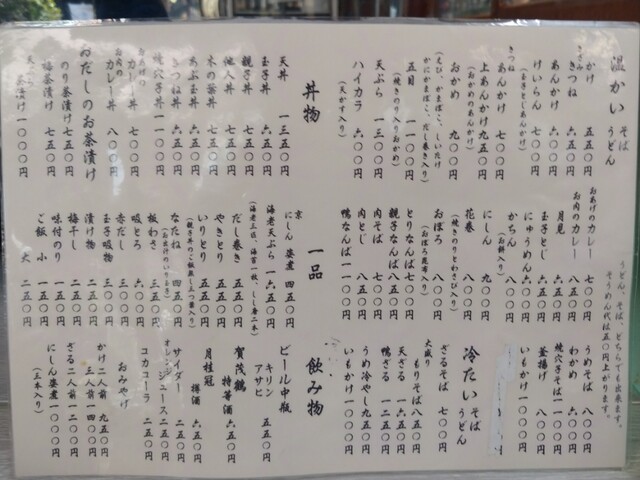 温かい そば うどん
かけ 五五〇円
きざみ
きつね 六五〇円
あんかけ 六五〇円
けいらん 七〇〇円
(玉子とじあんかけ)
きつね
あんかけ 七〇〇円
上あんかけ 九五〇円
(おかめのあんかけ)
おかめ 九〇〇円
(えび、かまぼこ、しいたけ
かにかまぼこ、だし巻き入り)
五目 一一〇〇円
(焼きのり入りおかめ)
天ぷら 一三〇〇円
ハイカラ 六〇〇円
(天かす入り)
おあげのカレー 七〇〇円
お肉のカレー 八五〇円
月見 六五〇円
玉子とじ 六五〇円
にゅうめん 六〇〇円
かちん 八〇〇円
(お餅入り)
にしん 九〇〇円
花巻 八〇〇円
(焼きのりとわさび入り)
おぼろ 八〇〇円
(おぼろ昆布入り)
とりなんば 七五〇円
親子なんば 八五〇円
肉そば 七〇〇円
肉とじ 八五〇円
鴨なんば 一一〇〇円
うどん、そば、どちらでも出来ます。
そうめん代は五〇円上がります。
うめそば 七〇〇円
わかめ 六〇〇円
焼穴子そば 一一〇〇円
釜揚げ 八〇〇円
いもかけ 一〇〇〇円
冷たい そば うどん
ざるそば 七〇〇円
大盛り
もりそば 八五〇円
天ざる 一五〇円
鴨ざる 一二五〇円
うめ冷やし 九五〇円
いもかけ 一〇〇〇円
丼物
天丼 一三五〇円
玉子丼 六五〇円
親子丼 七五〇円
他人丼 七五〇円
木の葉丼 七五〇円
あぶ玉丼 六五〇円
きつね丼 六五〇円
焼穴子丼 一一〇〇円
おあげの
カレー丼 七〇〇円
お肉の
カレー丼 八〇〇円
おだしのお茶漬け
のり茶漬け 七五〇円
梅茶漬け 七五〇円
天ぷら
茶漬け 一〇〇〇円
一品
京
にしん姿煮 四五〇円
海老天ぷら 一六五〇円
(海老三匹、海苔一枚、しし唐二本)
だし巻き 五五〇円
やきとり 五五〇円
いりとり 五五〇円
(親子丼のご飯無し五つ葉入り)
なたね 四五〇円
板わさ 三五〇円
吸とろ 六〇〇円
赤だし 三〇〇円
玉子吸物 三〇〇円
漬け物 二五〇円
梅干し 一五〇円
味付のり 一五〇円
ご飯 小 一五〇円
大 二五〇円
飲み物
ビール中瓶
キリン
アサヒ 五五〇円
賀茂鶴
特等酒 六五〇円
月桂冠
樽酒 六五〇円
サイダー 二五〇円
オレンジジュース 二五〇円
コカコーラ 二五〇円
おみやげ
かけ二人前 九五〇円
三人前 一四〇〇円
ざる二人前 一二〇〇円
にしん姿煮 一〇〇〇円
(三本入り)